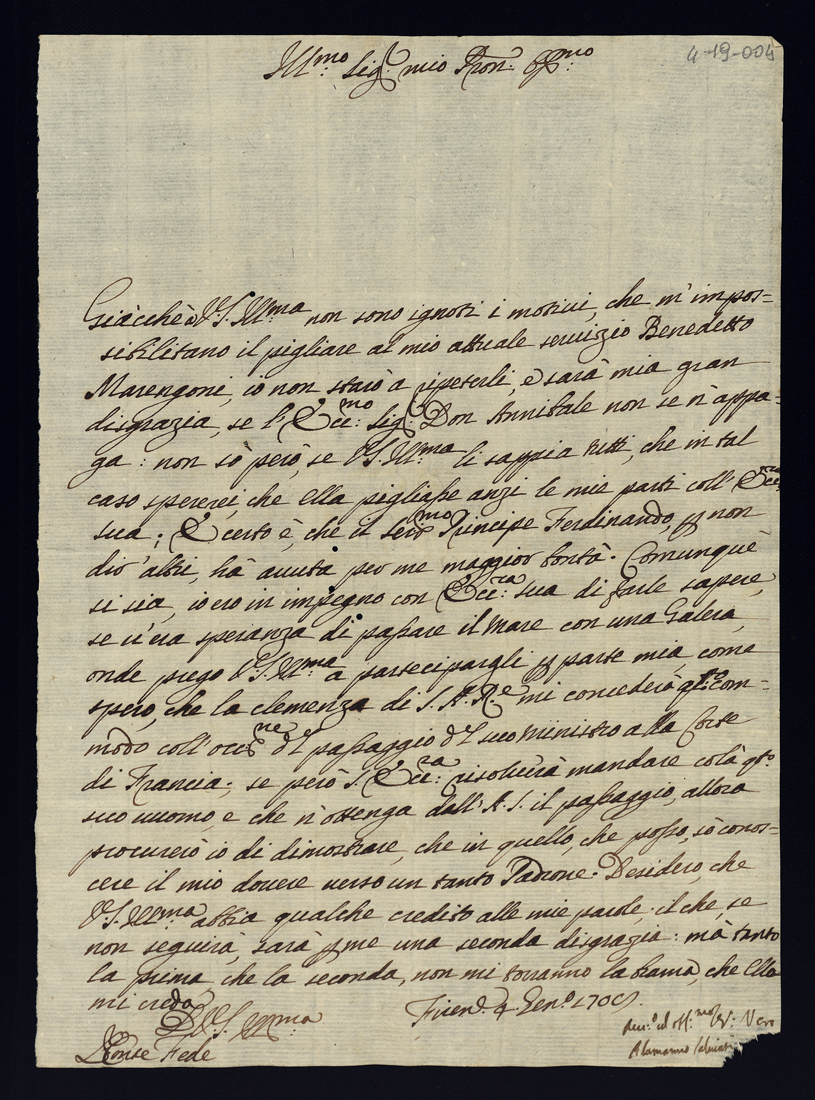 4-19-005
Ill.mo Sig.r mio Pron. Oss.mo
Giàcchè à V.S. Ill.ma non sono ignoti i motivi, che m'impos=
sibilitano il pigliare al mio attuale servizio Benedetto
Marengoni, io non starò à ripeterli, e sarà mia gran
disgrazia, se l'Ecc.mo Sig.r Don Annibale non se n'appa-
ga: non sò però, se V.S. Ill.ma li sappia tutti, che in tal
caso spererei, che ella pigliasse anzi le mie parti coll'Ecc.ra
sua; E certo è, che il Ser.mo Principe Ferdinando, p non
dir'altri, hà avuta per me maggior bontà. Comunque
si sia, io ero in impegno con Ecc.ra sua di farle sapere,
se v'era speranza di passare il Mare con una Galera,
onde prego V.S. Ill.ma a partecipargli p parte mia, come
spero, che la clemenza di S.A.R.e mi concederà q.to com=
modo coll'occ.ne d.l passaggio d.l suo Ministro alla Corte
di Francia; se però S. Ecc.ra risolverà mandare colà q.to
suo uomo, e che n'ottenga dall'A.S. il passaggio, allora
procurerò io di dimostrare, che in quello, che posso, sò conos=
cere il mio dovere verso un tanto Padrone. Desidero, che
V.S. Ill.ma abbia qualche credito alle mie parole; il che, se
non seguirà, sarà p me una seconda disgrazia: mà tanto
la prima, che la seconda, non mi torranno la brama, che ella
mi creda
D V.S. Ill.ma
Firen.e 4 Gen.o 170
Fede
Alamanno Salviati